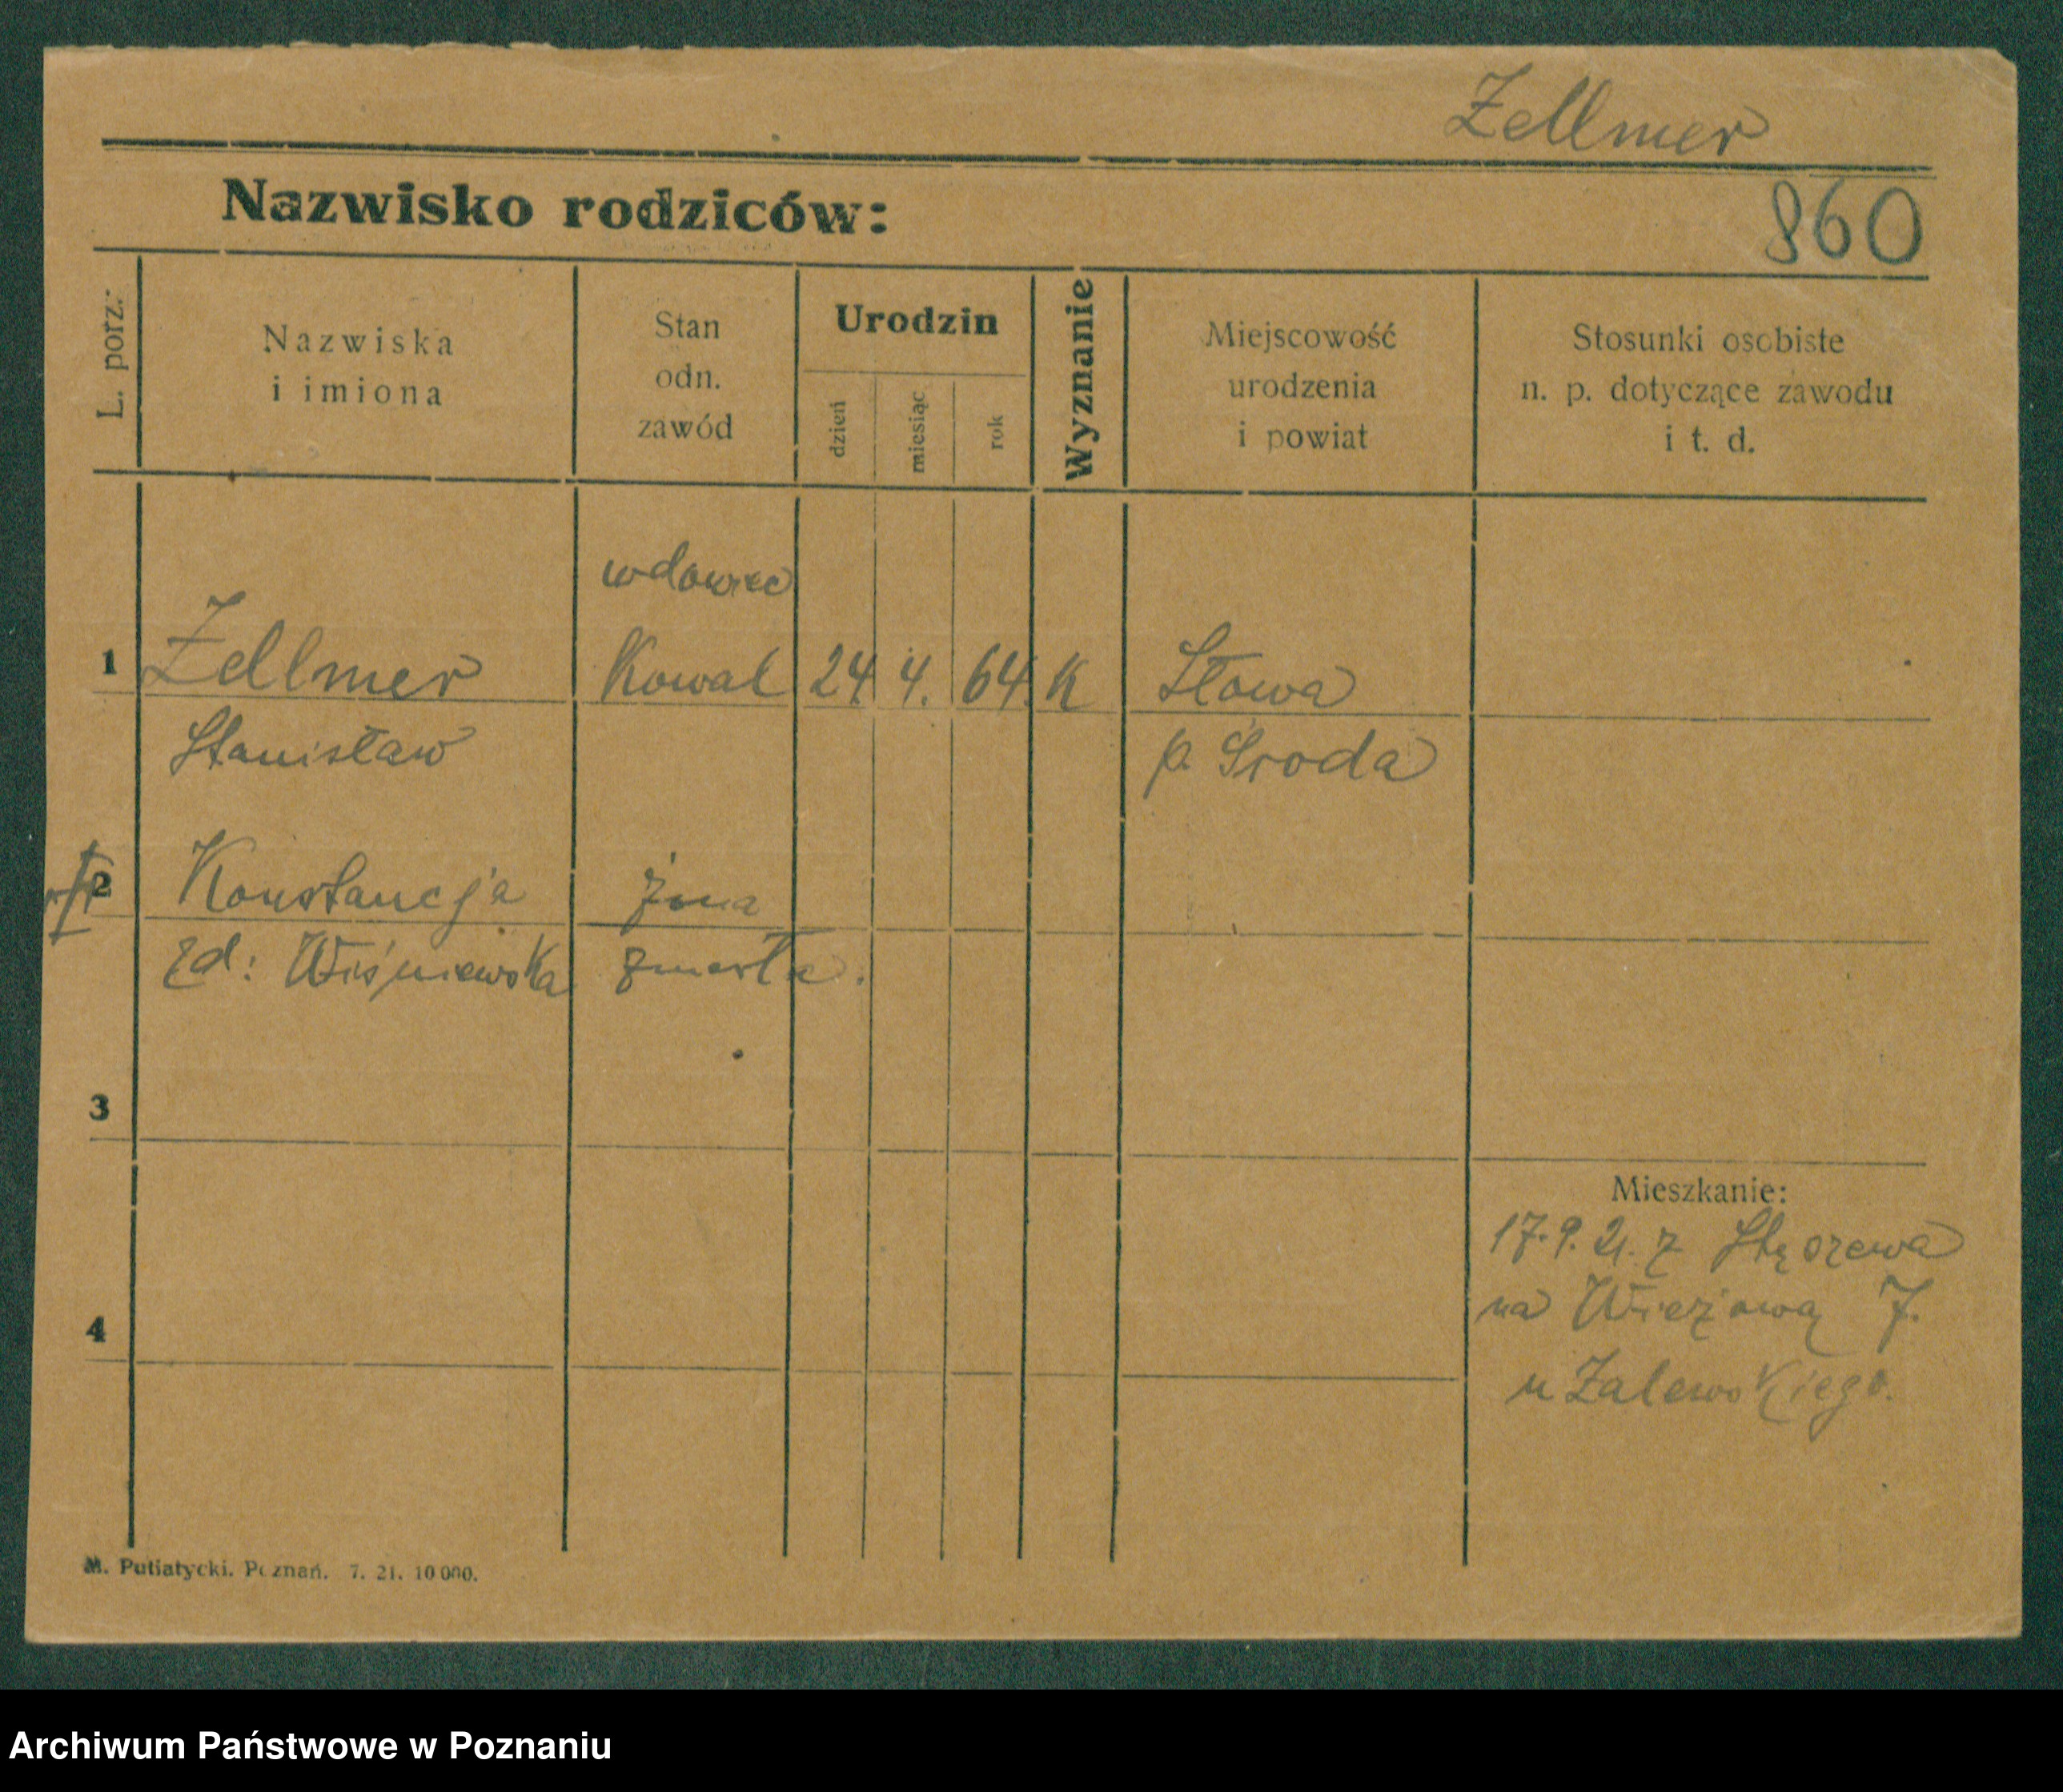 Zellmer
860
Nazwisko rodziców:
L. porz.
Nazwiska
i imiona
Stan
odn.
zawód
Urodzin
dzień
miesiąc
rok
Wyznanie
Miejscowość
urodzenia
i powiat
Stosunki osobiste
n. p. dotyczące zawodu
i t. d.
wdowiec
1 Zellmer Kowal 24. 4. 64. K Słowa
Stanisław p. Sroda
2 Konstancja żona
zd: Wiśniewska zmarła.
3
Mieszkanie:
17.9.21. z Stęszewa
na Wieżową 7.
4
u Zalewskiego.
M. Putiatycki. Poznań. 7. 21. 10 000.
Archiwum Państwowe w Poznaniu